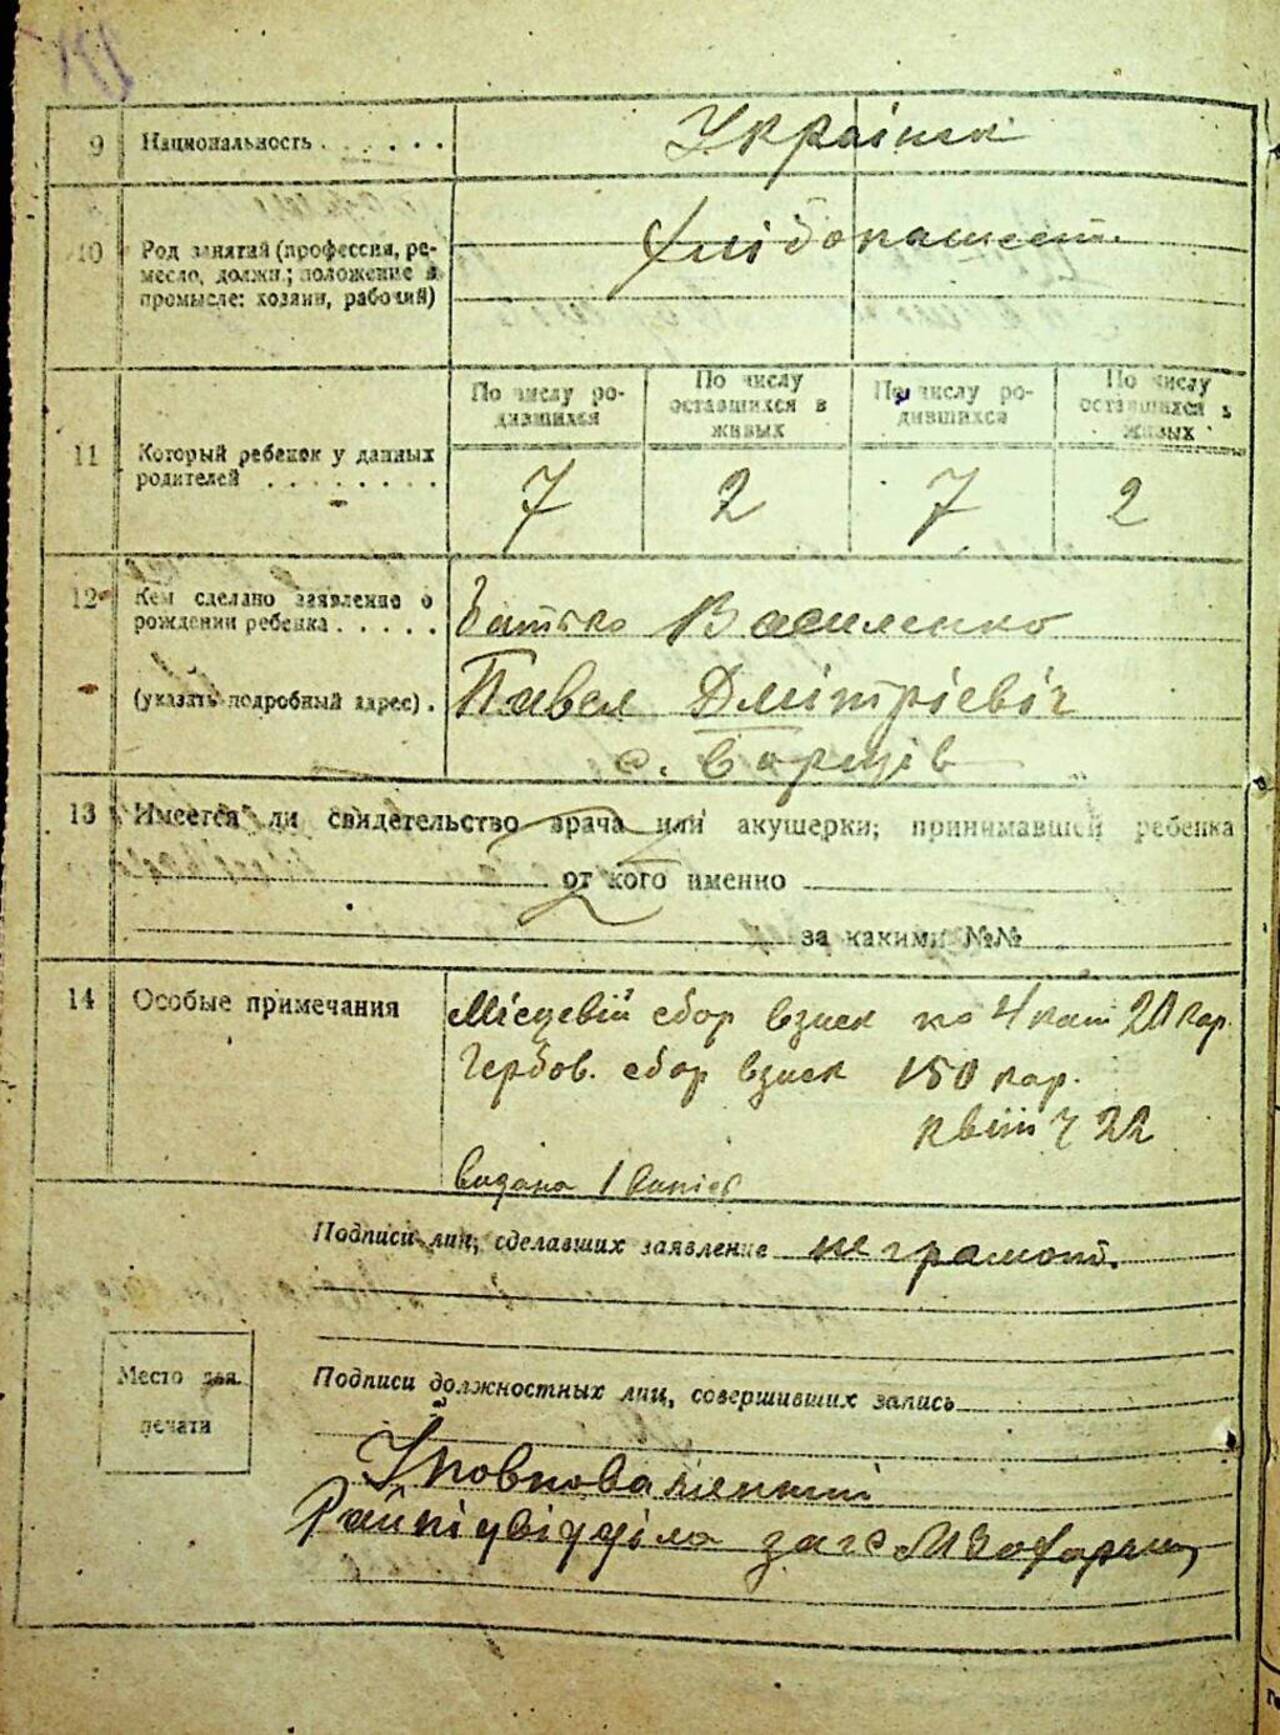 9 Национальность . . . . . . Українск
10 Род занятий (профессия, ре-
месло, должн.; положение в
промысле: хозяин, рабочий)
Хлібопашест.
11 Который ребенок у данных
родителей . . . . . . . .
По числу ро-
дившихся
По числу
оставшихся в
живых
По числу ро-
дившихся
По числу
оставшихся в
живых
7 2 7 2
12 Кем сделано заявление о
рождении ребенка . . . . .
(указать подробный адрес) .
Батько Василенко
Павел Дмітріевіч
с. Борщів
13 Имеется ли свидетельство врача или акушерки, принимавшей ребенка
от кого именно
за какими №№
14 Особые примечания
Місцевій сбор взиск по 4 кат 20 кар.
Гербов. сбор взиск 150 кар.
квит ч 22
видана 1 випіс
Подписи лиц, сделавших заявление не грамот.
Подписи должностных лиц, совершивших запись
Место для
печати
Уповноваженний
Райпідвідділа загс